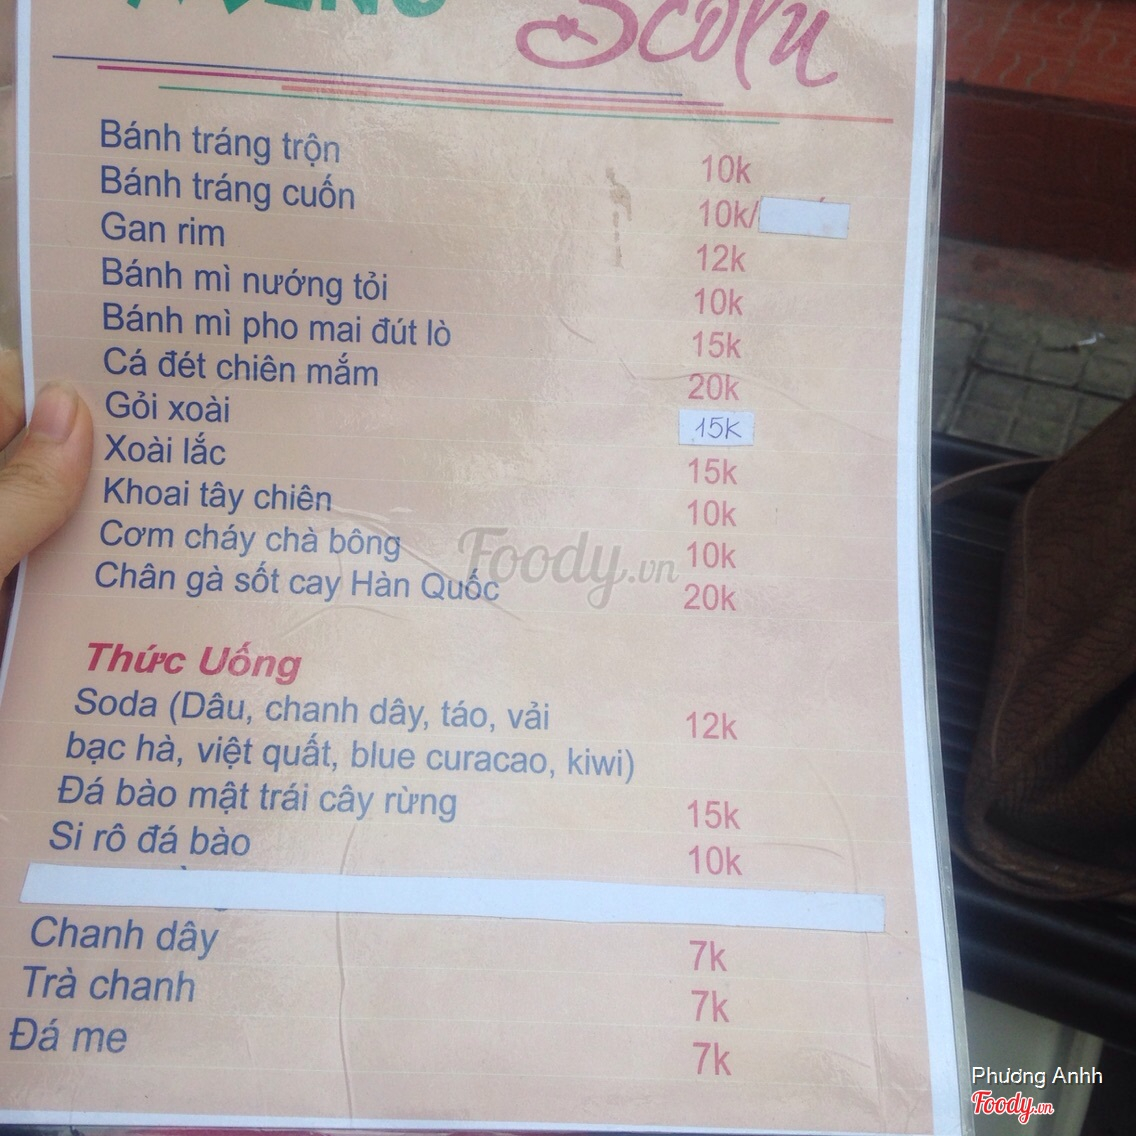 MENU Scolu
Bánh tráng trộn 10k
Bánh tráng cuốn 10k/
Gan rim 12k
Bánh mì nướng tỏi 10k
Bánh mì pho mai đút lò 15k
Cá đét chiên mắm 20k
Gỏi xoài 15K
Xoài lắc 15k
Khoai tây chiên 10k
Cơm cháy chà bông 10k
Chân gà sốt cay Hàn Quốc 20k
Foody.vn
Thức Uống
Soda (Dâu, chanh dây, táo, vải 12k
bạc hà, việt quất, blue curacao, kiwi)
Đá bào mật trái cây rừng 15k
Si rô đá bào 10k
Chanh dây 7k
Trà chanh 7k
Đá me 7k
Phương Anhh
Foody.vn